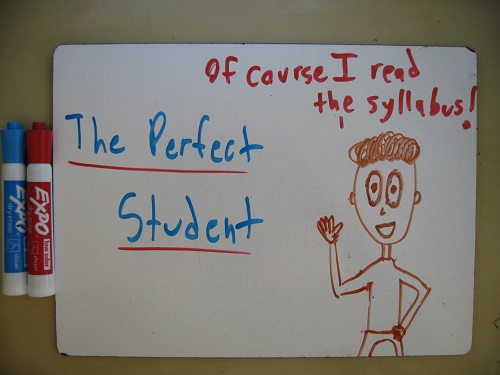 Of course I read
the syllabus!
The Perfect
Student
EXPO
dry erase
EXPO